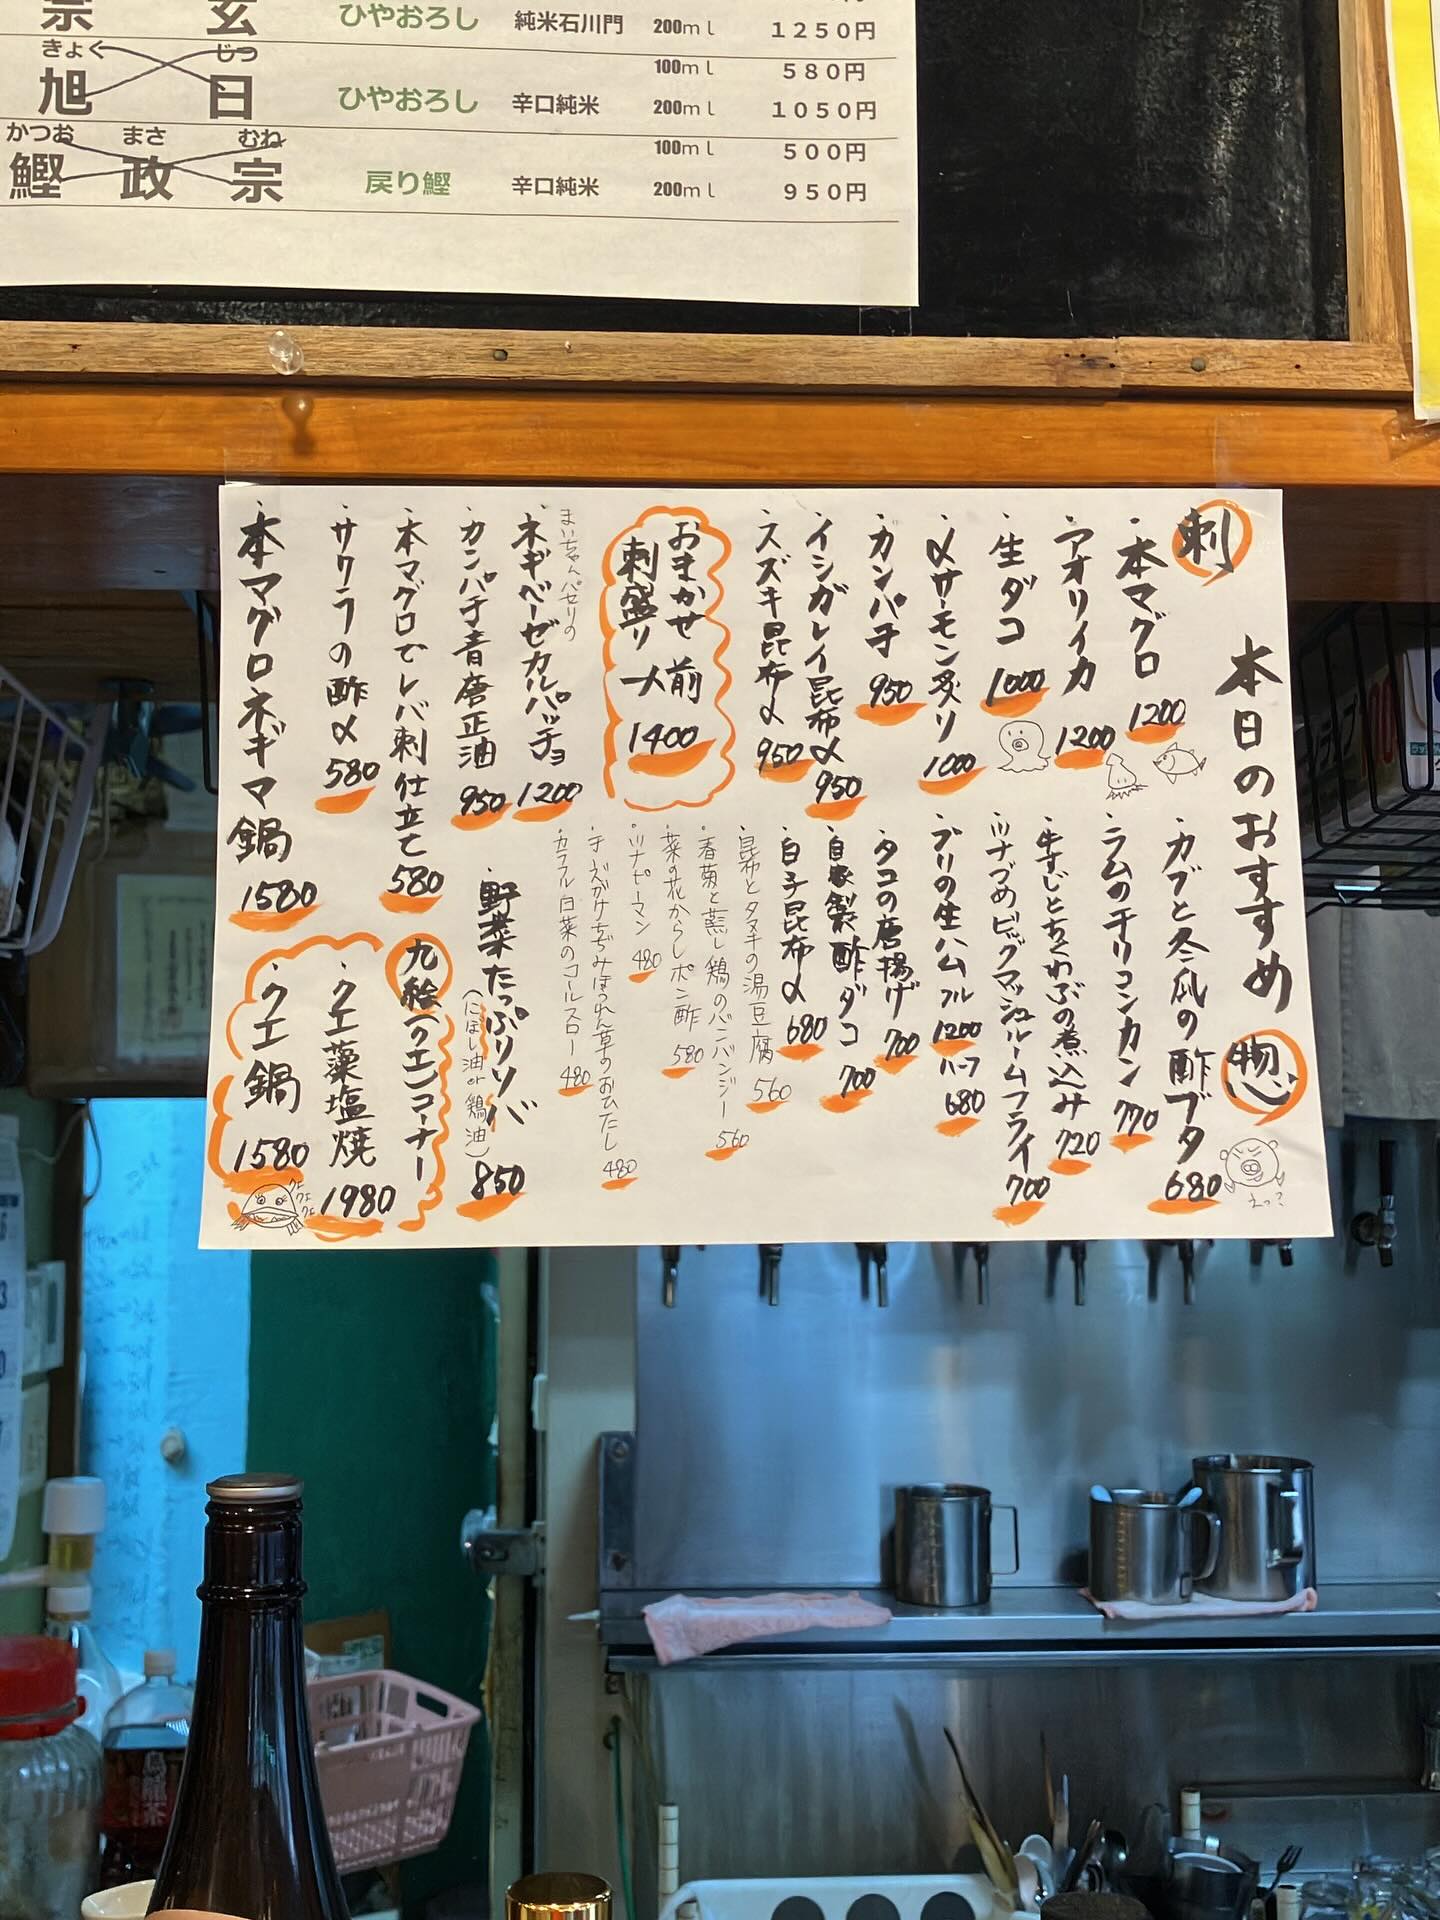 宗 玄 ひやおろし 純米石川門 200ml 1250円
きょく じつ
旭 日 ひやおろし 辛口純米 100ml 580円
200ml 1050円
かつお まさ むね
鰹 政 宗 戻り鰹 辛口純米 100ml 500円
200ml 950円
本日のおすすめ
刺
・本マグロ 1200
・アオリイカ 1200
・生ダコ 1000
・〆サーモン炙り 1000
・カンパチ 950
・イシガレイ昆布〆 950
・スズキ昆布〆 950
おまかせ
刺盛り 一人前
1400
まいちゃんパセリの
・ネギベーゼカルパッチョ 1200
・カンパチ音唐正油 950
・本マグロでレバ刺仕立て 580
・サワラの酢〆 580
・本マグロネギマ鍋 1580
惣
えっ?
・カブと冬瓜の酢ブタ 680
・ラムのチリコンカン 770
・牛すじとちくわぶの煮込み 720
・ツナづめビッグマッシュルームフライ 700
・ブリの生ハム フル 1200
ハーフ 680
・タコの唐揚げ 700
・自家製酢ダコ 700
・白子昆布〆 680
・昆布とタヌキの湯豆腐 560
・春菊と蒸し鶏のバンバンジー 560
・菜の花からしポン酢 580
・ツナピーマン 480
・チーズがけちぢみほうれん草のおひたし 480
・カラフル白菜のコールスロー 480
・野菜たっぷりソバ 850
(にぼし油or鶏油)
九絵(クエ)コーナー
・クエ藻塩焼 1980
・クエ鍋 1580
クエ
クエ
クエ